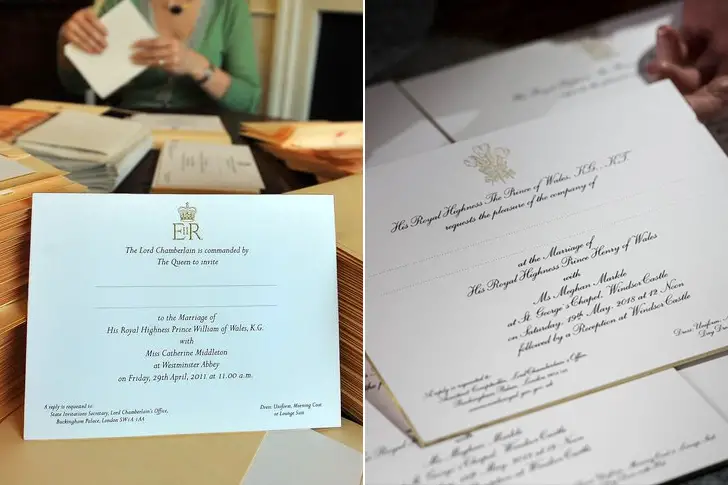 EIIR
The Lord Chamberlain is commanded by
The Queen to invite
to the Marriage of
His Royal Highness Prince William of Wales, K.G.
with
Miss Catherine Middleton
at Westminster Abbey
on Friday, 29th April, 2011 at 11.00 a.m.
A reply is requested to:
State Invitations Secretary, Lord Chamberlain's Office,
Buckingham Palace, London SW1A 1AA
Dress: Uniform, Morning Coat
or Lounge Suit
His Royal Highness The Prince of Wales, K.G., K.T.
requests the pleasure of the company of
at the Marriage of
His Royal Highness Prince Henry of Wales
with
Ms Meghan Markle
at St. George's Chapel, Windsor Castle
on Saturday, 19th May, 2018 at 12 Noon
followed by a Reception at Windsor Castle
A reply is requested to:
Lord Chamberlain's Office,
Buckingham Palace, London
Dress: Uniform,
Day
Ms Meghan Markle
at St. George's Chapel, Windsor Castle
on Saturday, 19th May, 2018 at 12 Noon
at Windsor Castle